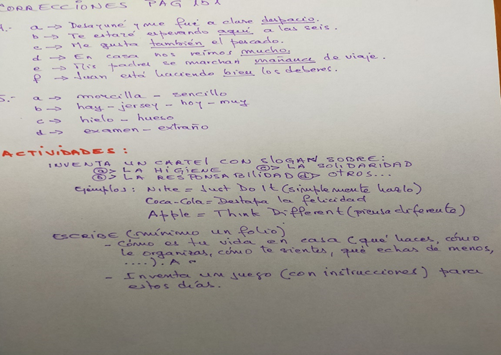 CORRECCIONES PAG 151
4.- a → Desayuné y me fui a clase despacio.
b → Te estaré esperando aquí a las seis.
c → Me gusta también el pescado.
d → En casa nos reímos mucho.
e → Mis padres se marchan mañana de viaje.
f → Juan está haciendo bien los deberes.
5.- a → morcilla - sencillo
b → hay - jersey - hoy - muy
c → hielo - hueso
d → examen - extraño
ACTIVIDADES:
INVENTA UN CARTEL CON SLOGAN SOBRE:
a> LA HIGIENE c> LA SOLIDARIDAD
b> LA RESPONSABILIDAD d> OTROS...
Ejemplos: Nike = Just Do It (simplemente hazlo)
Coca-Cola = Destapa la felicidad
Apple = Think Different (piensa diferente)
ESCRIBE (mínimo un folio)
- Cómo es tu vida en casa (qué haces, cómo
te organizas, cómo te sientes, qué echas de menos,
....). A
- Inventa un juego (con instrucciones) para
estos días.